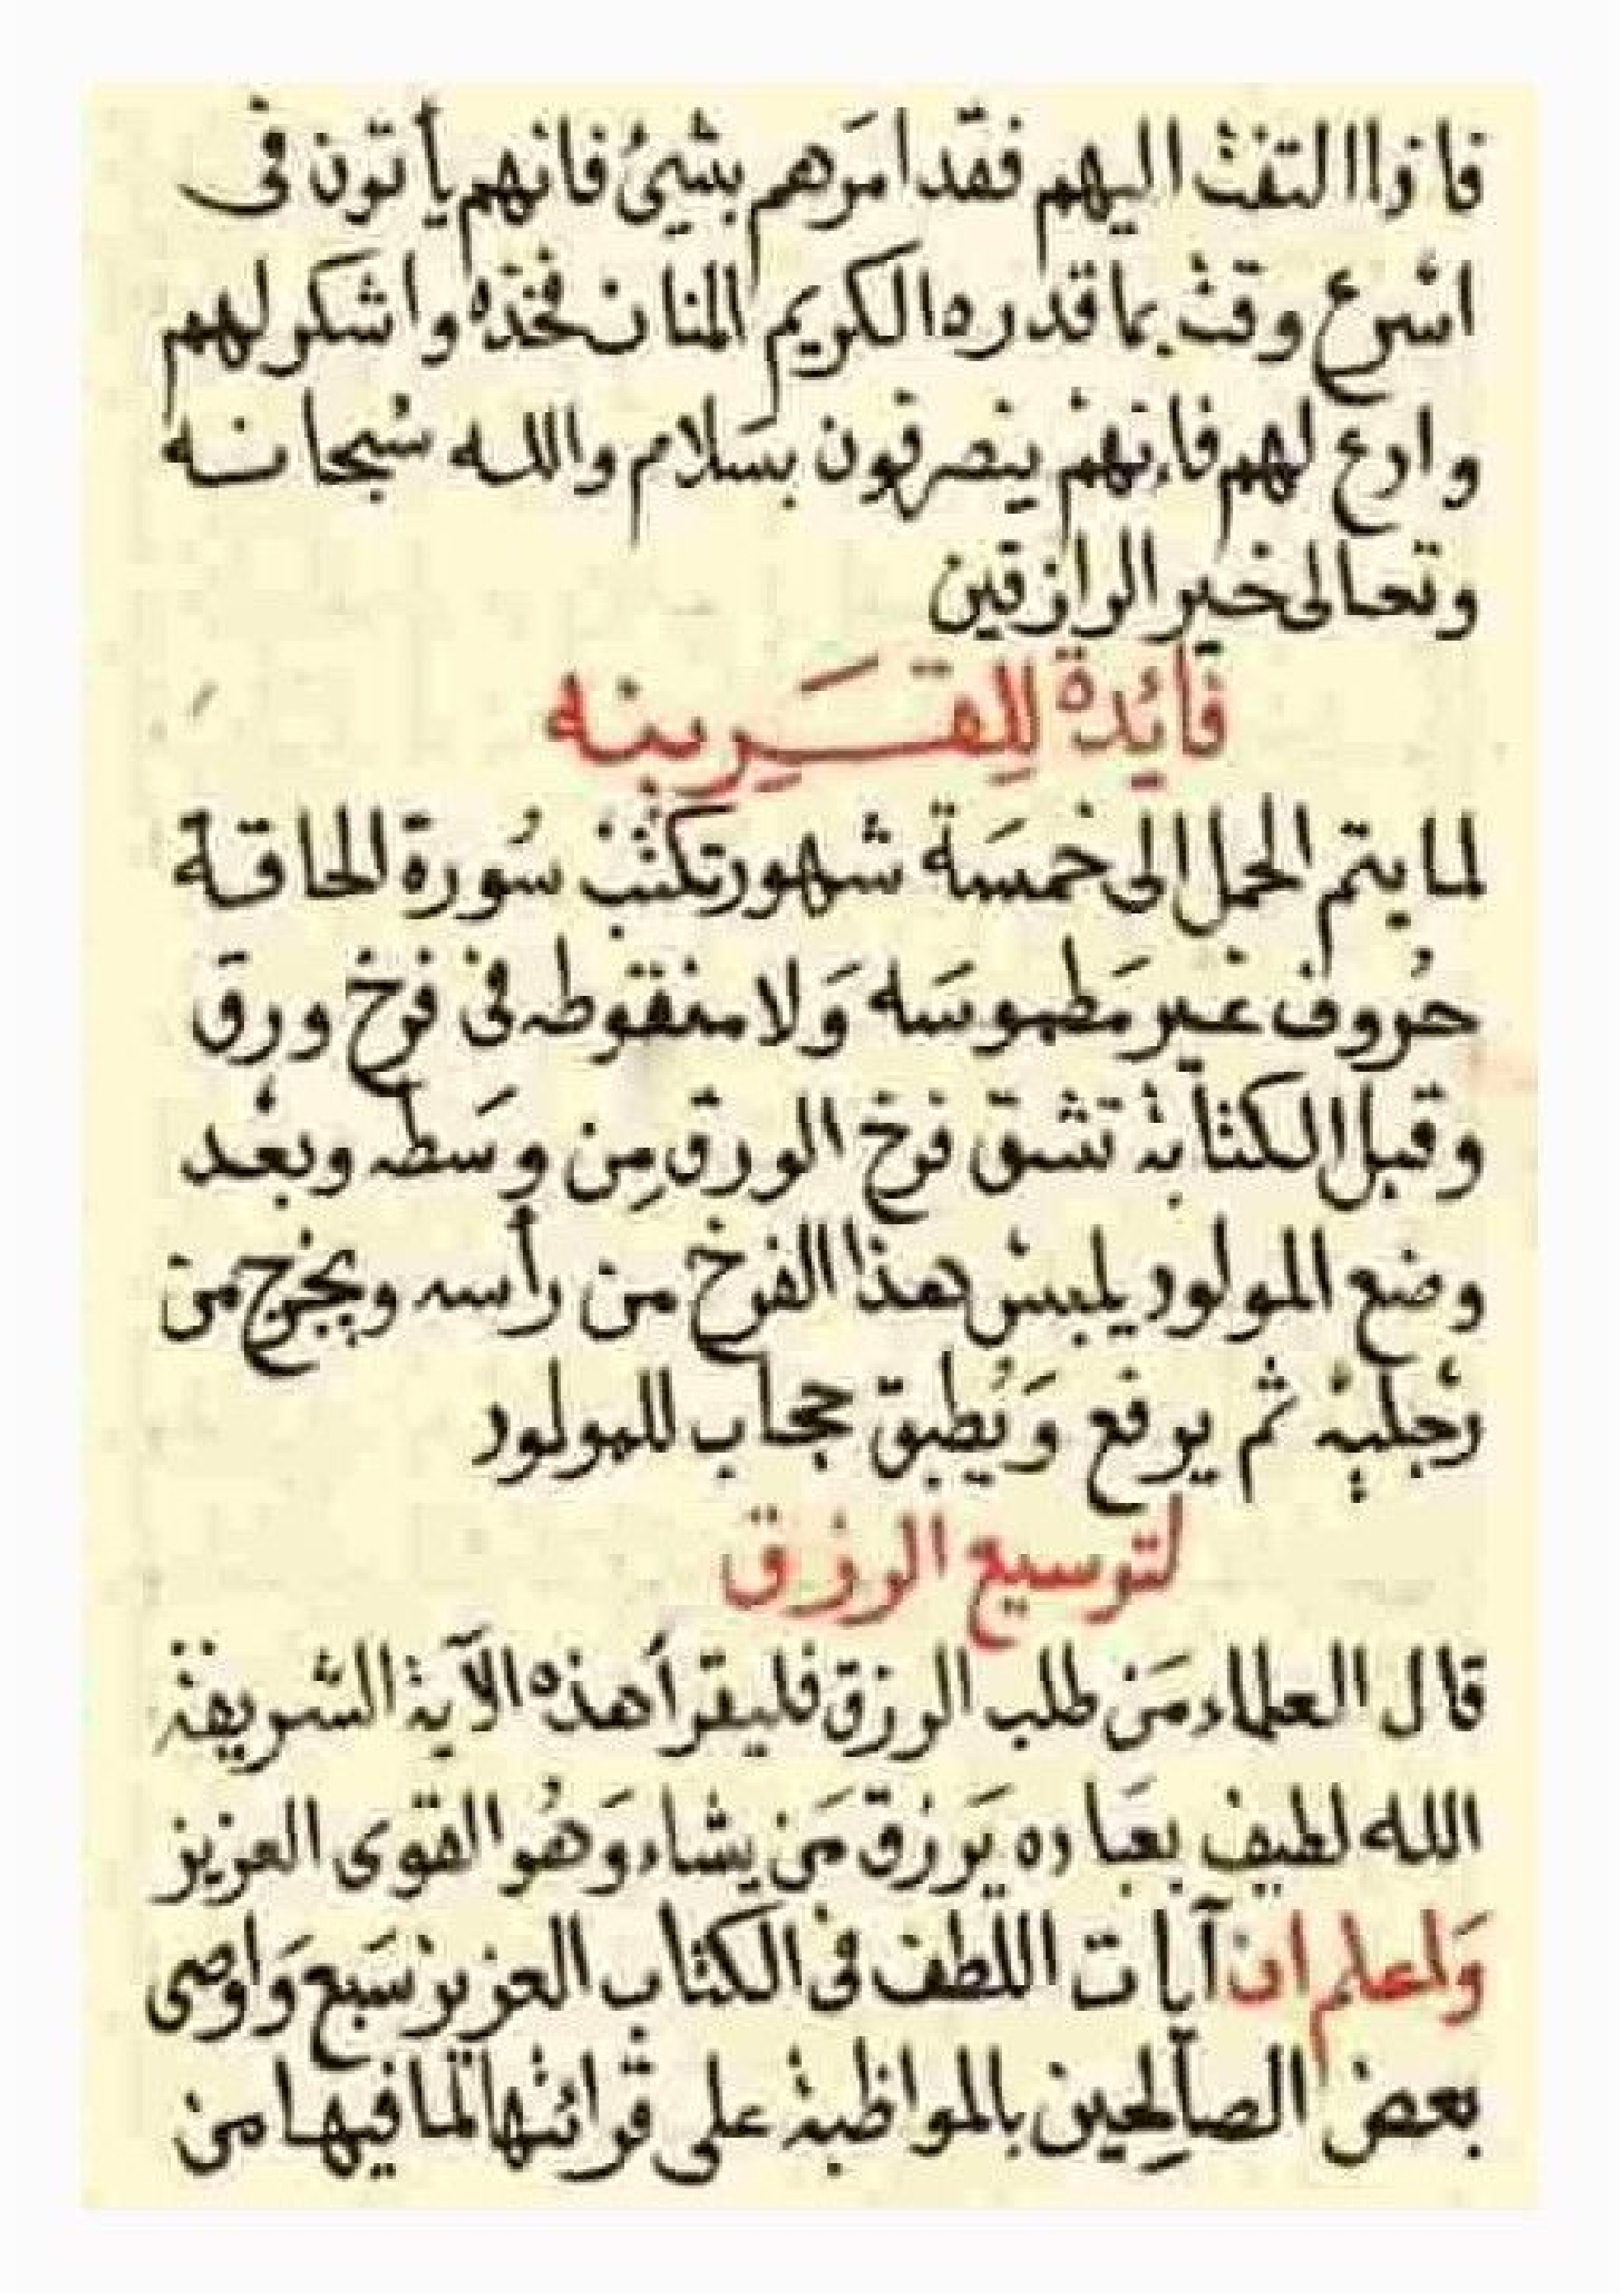 فاذا التفت اليهم فقد امَرهم بشيئُ فانهم يأتون فى
اسْرع وقت بما قدره الكريم المنان فخذه واشكر لهم
وادع لهم فانهم ينصرفون بسَلام والله سُبحانه
وتعالى خير الرازقين
فائدة للِقَرِينه
لما يتم الحمل الى خمسَة شهور تكتب سُورة الحاقة
حُروف غير مَطموسَه وَلا منقوطه فى فرخ ورق
وقبل الكتابة تشق فرخ الورق مِن وسَطه وبعْد
وضع المولود يلبسْ هذا الفرخ من رأسه ويخرج من
رجْليه ثم يرفع وَيُطبق حجاب للمولود
لتوسيع الرزق
قال العلماء مَن طلب الرزق فليقرأ هذه الآية الشريفة
الله لطيف بعبَاده يَرزق مَن يشاء وَهُو القوى العزيز
وَاعلم ان آيات اللطف فى الكتاب العزيز سَبع وَاوصى
بعض الصالِحين بالمواظبة على قرائتها لما فيها من